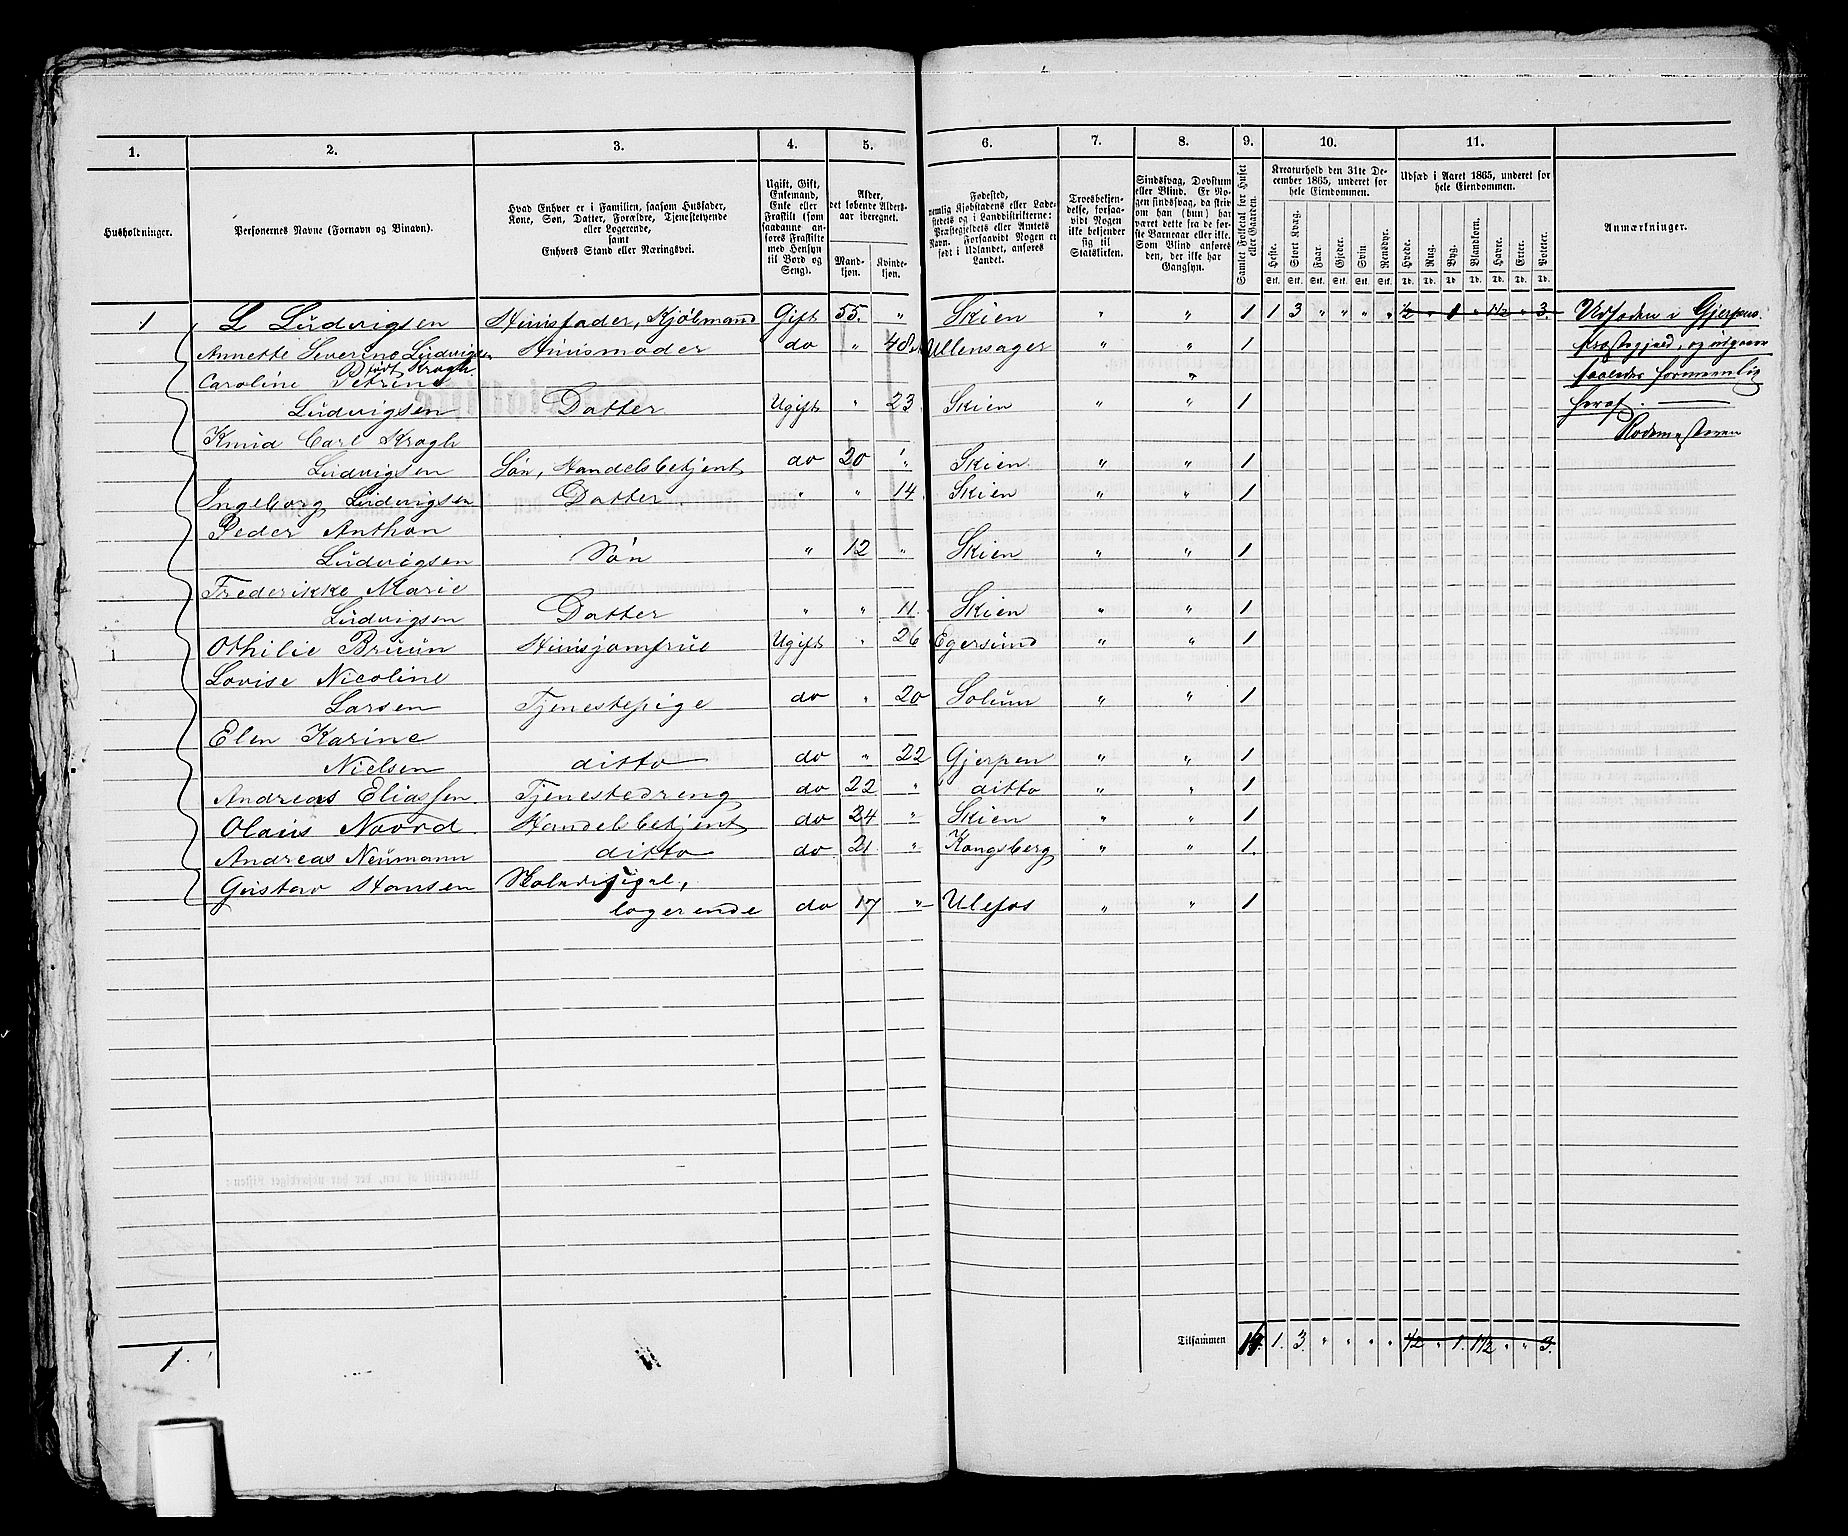 1. 2. 3. 4. 5. 6. 7. 8. 9. 10. 11.
Husholdninger.
Personernes Navne (Fornavn og Binavn).
Hvad Enhver er i Familien, saasom Husfader,
Kone, Søn, Datter, Forældre, Tjenestetyende
eller Logerende,
samt
Enhvers Stand eller Næringsvei.
Ugift, Gift,
Enkemand,
Enke eller
Fraskilt (som
saadanne an-
føres Fraskilte
med Hensyn
til Bord og
Seng).
Alder,
det løbende Alders-
aar iberegnet.
Mand-
kjøn.
Kvinde-
kjøn.
Fødested,
nemlig Kjøbstadens eller Lade-
stedets og i Landdistrikterne:
Præstegjeldets eller Amtets
Navn. Forsaavidt Nogen er
født i Udlandet, anføres
Landet.
Troesbekjen-
delse, forsaa-
vidt Nogen
ikke bekjender
sig til
Statskirken.
Sindssvag, Døvstum
eller Blind. Er No-
gen sindssvag, da skriv
om han (hun) har
været dette fra de før-
ste Barneaar eller ikke.
Som Blind anføres
den, der ikke har
Gangsyn.
Samlet Folketal for Huset
eller Gaarden.
Kreaturhold den 31te De-
cember 1865, underet for
hele Eiendommen.
Heste. Stort Kvæg. Faar. Gjeder. Svin Rensdyr.
Stk. Stk. Stk. Stk. Stk. Stk.
Udsæd i Aaret 1865, underet for
hele Eiendommen.
Hvede. Rug. Byg. Blandkorn. Havre. Erter. Poteter.
Td. Td. Td. Td. Td. Td. Td.
Anmærkninger.
1 L Ludvigsen Huusfader, Kjøbmand Gift 55. " Skien " " 1 1 3 " " " " ½ " 1 " 1½ " 3. Udsæden i Gjerpens
Annette Severine Ludvigsen Huusmoder do " 48 Ullensager " " 1 Præstegjeld, og udgaaer
født Krogh.
Caroline Petrine " saaledes formeentlig
Ludvigsen Datter Ugift " 23 Skien " " 1 heraf.
Knud Carl Krogh Rodemesteren
Ludvigsen Søn, Handelsbetjent do 20 " Skien " " 1
Ingeborg Ludvigsen Datter " " 14 Skien " " 1
Peder Anthon
Ludvigsen Søn " 12 " Skien " " 1
Frederikke Marie
Ludvigsen Datter " " 11. Skien " " 1
Othilie Bruun Huusjomfrue Ugift " 26 Egersund " " 1
Lovise Nicoline
Larsen Tjenestepige do " 20 Solum " " 1
Elen Karine
Nielsen ditto do " 22 Gjerpen " " 1
Andreas Eliassen. Tjenestedreng do 22 " ditto " " 1
Olaus Noord. Handelsbetjent do 24 " Skien " " 1
Andreas Neumann ditto do 21 " Kongsberg " " 1.
Gustav Hansen
logerende do 17 " Ulefos " " 1
Tilsammen 14 1. 3. " " " " ½ " 1. 1½ " " 3.
1.